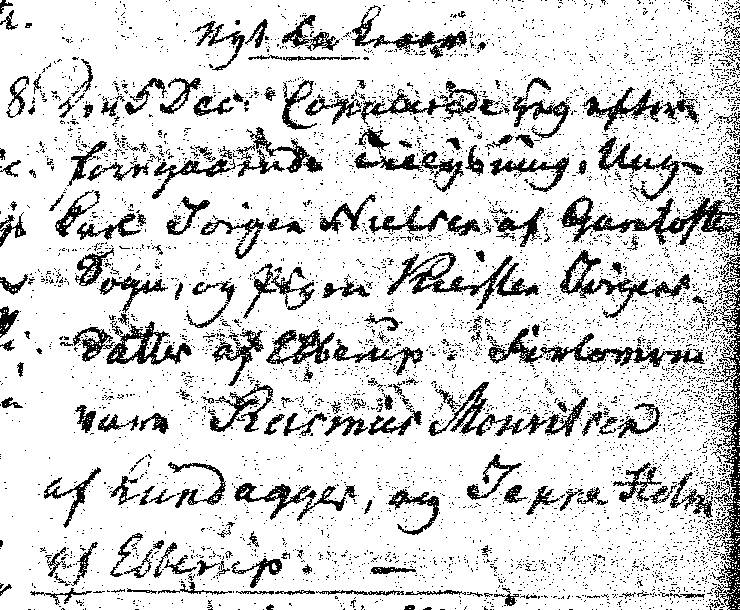 Nyt
8. Den 5 Dec. Copulerede jeg efter
foregaaende Tillysning, Ung-
Karl Jørgen Nielsen af Gamtofte
Sogn, og Pigen Kiersten Jørgens-
datter af Ebberup. Forlovere
vare Rasmus Mouritsen
af Lundager, og Jeppe Holm
af Ebberup. —